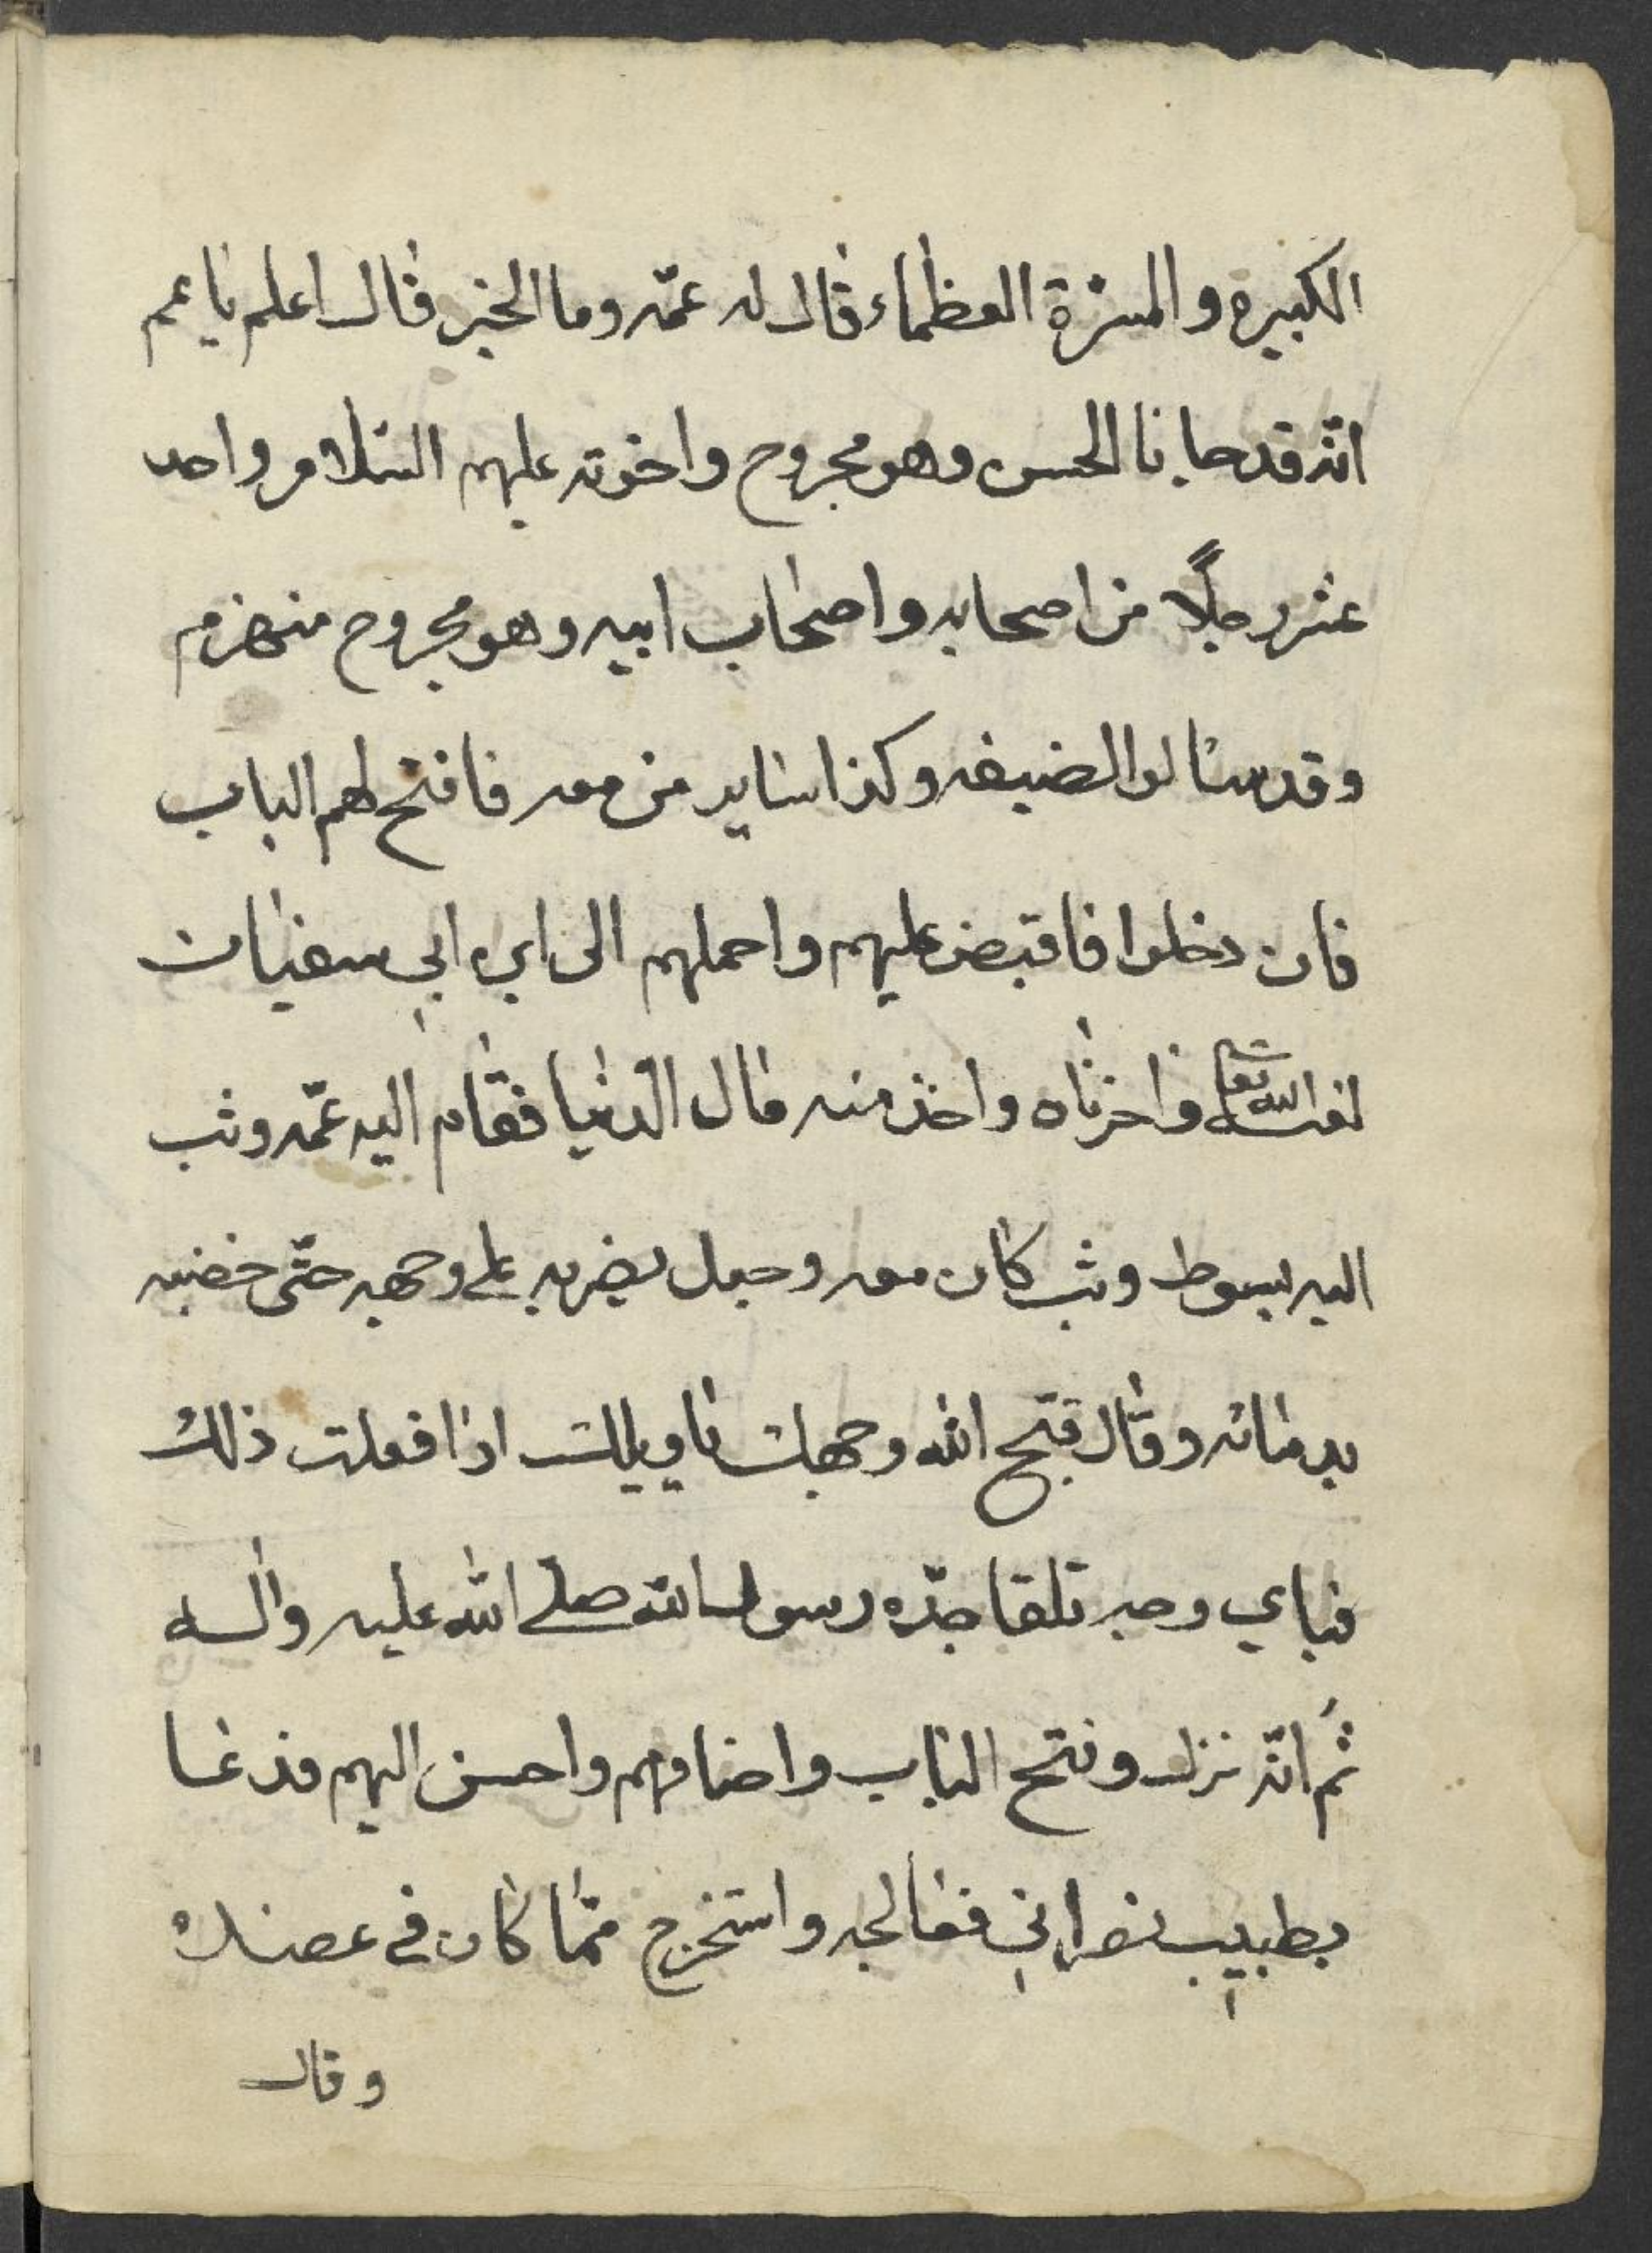 الكبيرة والمسرّة العظماء قال له عمّه وما الخبر فقال اعلم يا عم
انّه قد جاءنا الحسن وهو مجروح واخوته عليهم السّلام واحد
عشر رجلًا من اصحابه واصحاب ابيه وهو مجروح منهزم
وقد سالوا الضيفه وكذا ساير من معه فافتح لهم الباب
فان دخلوا فاقبض عليهم واحملهم الى ابن ابي سفيان
لعنه الله تعا واخزاه واخذ منه مال الدّنيا فقام اليه عمّه وثب
اليه بسوط وثب كان معه وجعل يضربه على وجهه حتّى خضبه
بدمائه وقال قبّح الله وجهك يا ويلك اذا فعلت ذلك
فباي وجه تلقا جدّه رسول الله صلى الله عليه واله
ثم انّه نزل وفتح الباب واضافهم واحسن اليهم فدعا
بطبيب نصراني فعالجه واستخرج ممّا كان في عضده
وقال